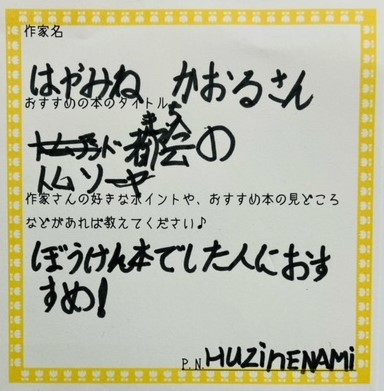 作家名
はやみね かおるさん
おすすめの本のタイトル
まち
都会の
トム ソーヤ
作家さんの好きなポイントや、おすすめ本の見どころ
などがあれば教えてください♪
ぼうけん本でした人におす
すめ!
P.N. HUZiNENAMi